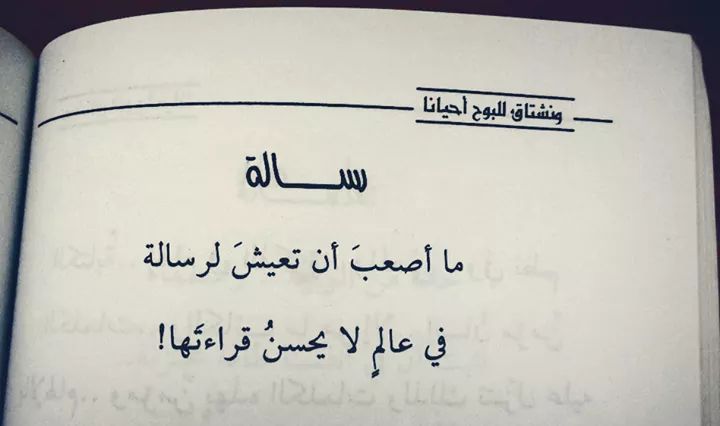 ونشتاق للبوح أحيانا
ســالة
ما أصعبَ أن تعيشَ لرسالة
في عالمٍ لا يحسنُ قراءتَها!